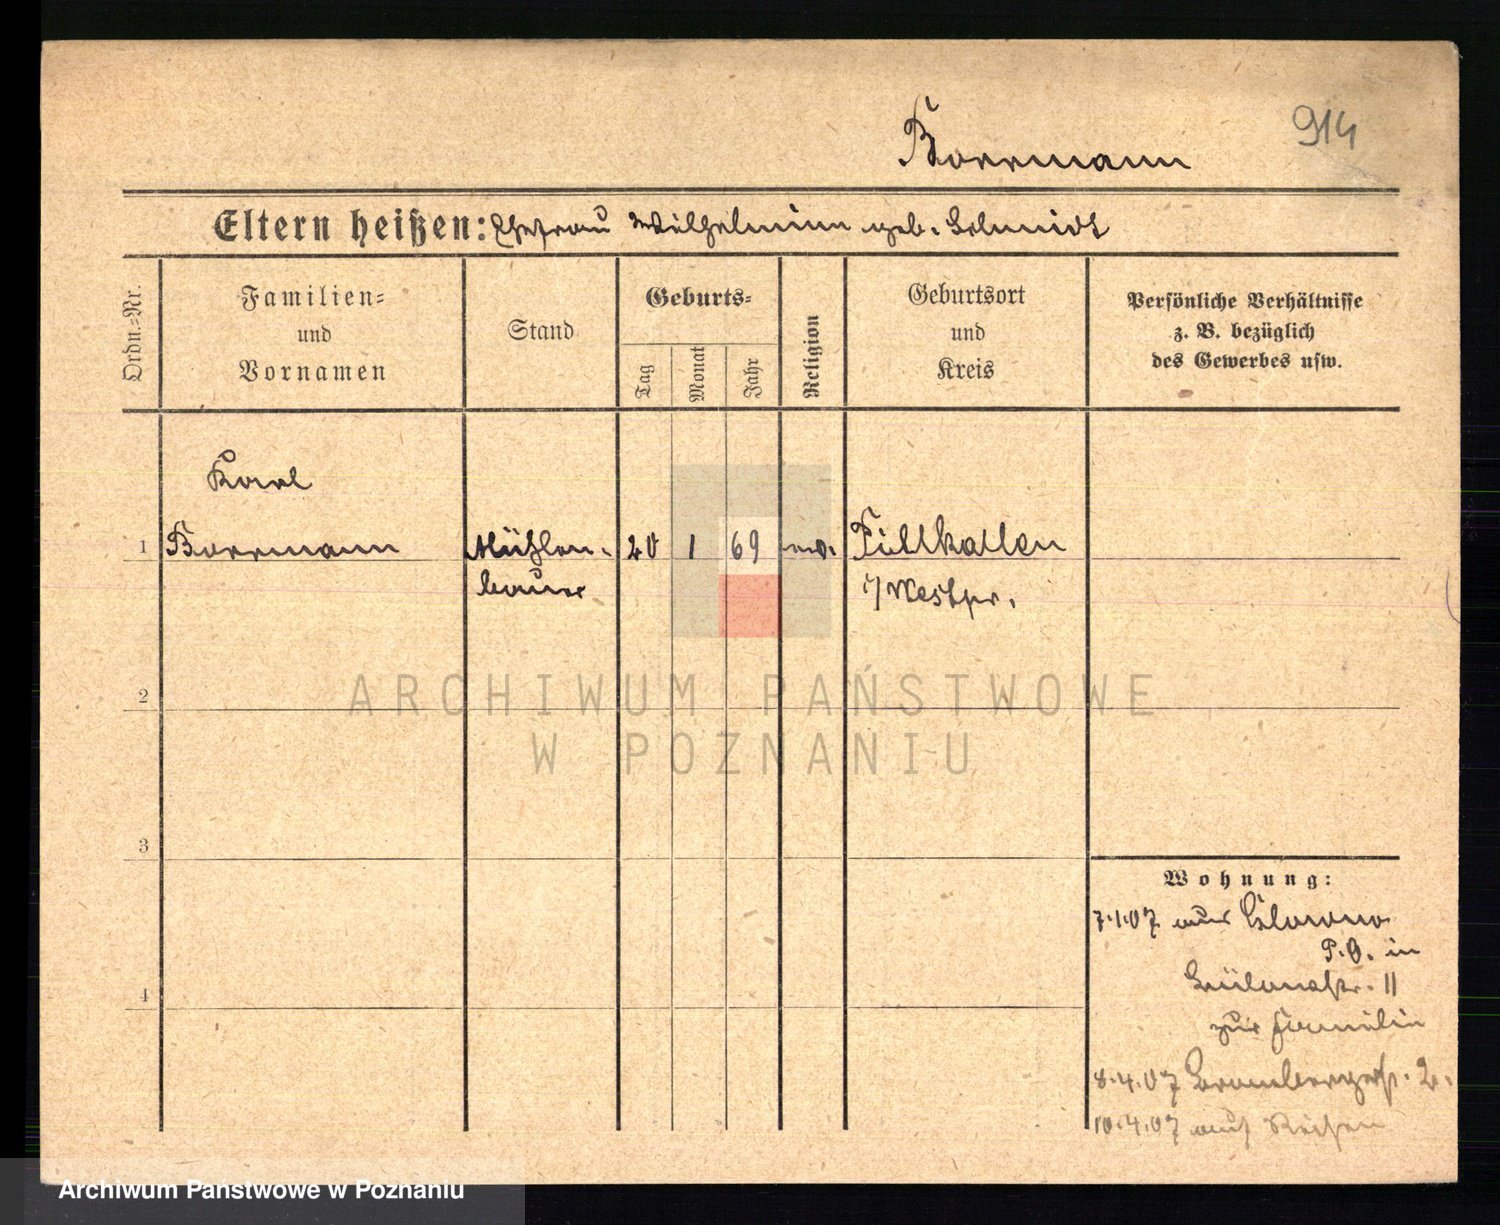 914
Borrmann
Eltern heißen: Ehefrau Wilhelmine geb. Schmidt
Ordn.=Nr.
Familien=
und
Vornamen
Stand
Geburts=
Tag
Monat
Jahr
Religion
Geburtsort
und
Kreis
Persönliche Verhältnisse
z. B. bezüglich
des Gewerbes usw.
Karl
1 Borrmann Mühlen- 20 1 69 ev. Pillkallen
bauer i/Westpr.
2
ARCHIWUM PAŃSTWOWE
W POZNANIU
3
Wohnung:
7.1.07 aus Glowno
P.O. in
4
Bülowstr. 11
zur Familie
8.4.07 Brombergerstr. 2.
10.4.07 auf Reisen
Archiwum Państwowe w Poznaniu